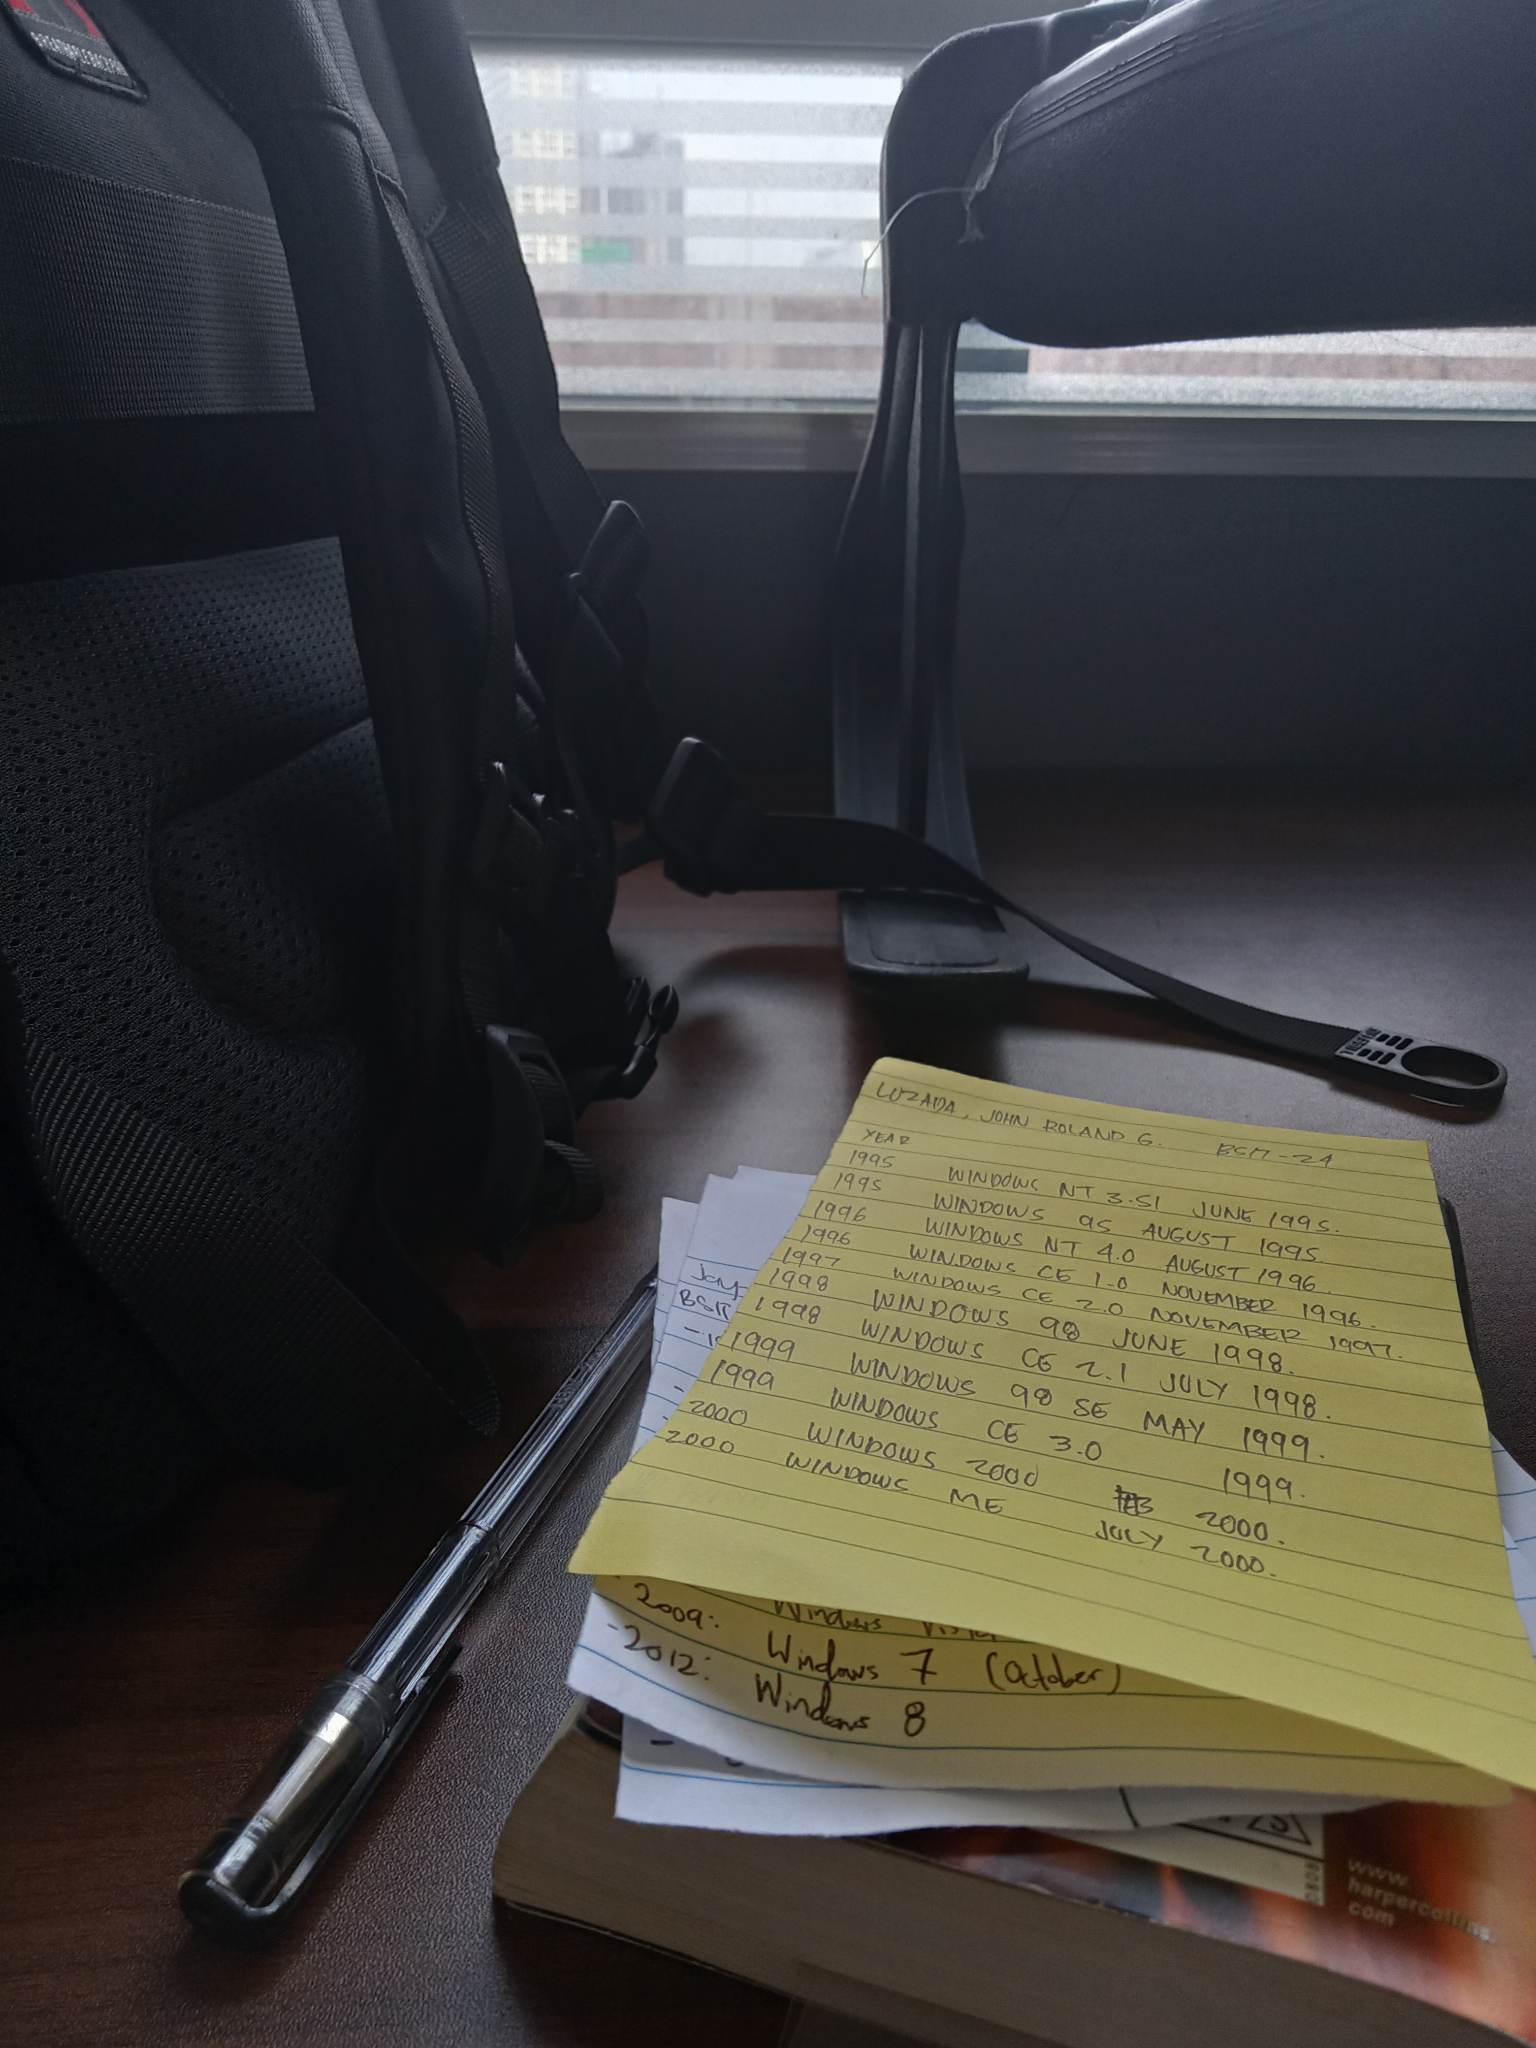 LOZADA, JOHN ROLAND G. BSIT-24
YEAR
1995 WINDOWS NT 3.51 JUNE 1995.
1995 WINDOWS 95 AUGUST 1995
1996 WINDOWS NT 4.0 AUGUST 1996.
1996 WINDOWS CE 1.0 NOVEMBER 1996.
1997 WINDOWS CE 2.0 NOVEMBER 1997.
1998 WINDOWS 98 JUNE 1998.
1998 WINDOWS CE 2.1 JULY 1998.
1999 WINDOWS 98 SE MAY 1999.
1999 WINDOWS CE 3.0 1999.
2000 WINDOWS 2000 FEB 2000.
2000 WINDOWS ME JULY 2000.
Jay
BSIT
Windows
-2009: Windows 7 (October)
-2012: Windows 8
www.
harpercollins.
com